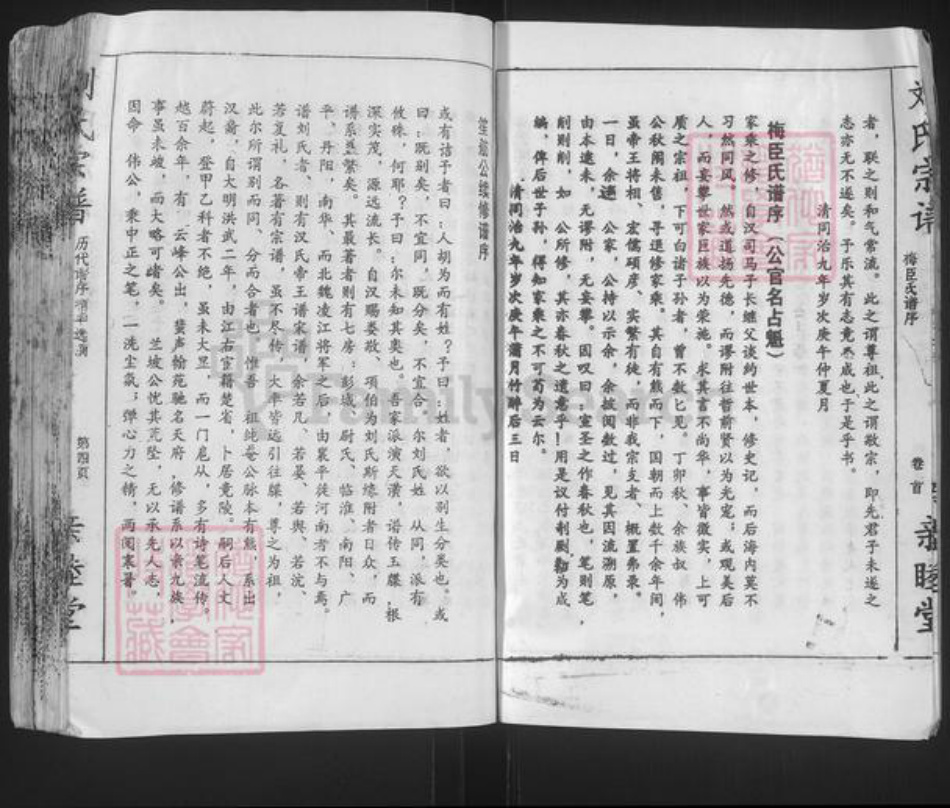 刘氏宗谱
梅臣氏谱序
卷首
亲睦堂
者，联之则和气常流。此之谓尊祖此之谓敬宗，即先君子未遂之
志亦无不遂矣。予乐其有志竟成也于是乎书。
清同治九年岁次庚午仲夏月
梅臣氏谱序（公官名占魁）
家乘之修，自汉司马子长继父谈约世本，修史记，而后海内莫不
习然同风，然或道扬先德，而谬附往哲前贤以为光宠；或观美后
人，而妄攀世家巨族以为荣施。求其言不尚华，事皆徵实，上可
质之宗祖，下可白诸子孙者，曾不数匕见。丁卯秋、余族奴伟
公秋闱未售，寻逗修家乘。其自有熊而下，国朝而上数千余年间，
虽帝王将相、宏儒硕彦、实繁有徒，而非我宗支者、概置弗录。
一日，余遊公家，公持以示余，余披阅数过，见其因流溯原，
由本逮末，无谬附，无妄攀。因叹曰：宣圣之作春秋也，笔则笔，
削则削，如公所修，其亦春秋之遗意乎！用是议付剞劂勒为成
编，俾后世子孙，得知家乘之不可苟为云尔。
清同治九年岁次庚午蒲月竹醉后三日
笙翁公续修谱序
或有诘予者曰：人胡为而有姓？予曰：姓者，欲以别生分类也。或
曰：既别矣，不宜同，既分矣，不宜合，尔刘氏姓从同，派有
攸殊，何耶？予曰：尔未知其奥也，吾家派演天潢，谱传玉牒，根
深实茂，源远流长。自汉赐娄敬、项伯为刘氏斯缘附者日众，而
谱系益繁矣。其最著者则有七房：彭城、尉氏、临淮、南阳、广
平、丹阳，南华、而北魏凌江将军之后，由襄平徒河南者不与焉。
谱刘氏者、则有汉氏帝王谱宋谱，余若凡、若晏、若舆、若沆、
若复礼，各著有宗谱，虽不尽传、大率皆远引往牒，尊之为祖，
此尔所谓别而同、分而合者也。惟吾祖纯菴公脉本有熊，系出
汉裔，自大明洪武二年，由江右宦籍楚省，卜居竟陵。嗣后人文
蔚起，登甲乙科者不绝，虽未大显，而一门扈从，多有诗笔流传。
越百余年，有云峰公出，蜚声翰苑驰名天府，修谱系以亲九族，
事虽未竣，而大略可绪矣。兰坡公忧其荒坠，无以承先人志，
因命伟公，秉中正之笔，一洗尘氛；弹心力之精，两阅寒暑。
刘氏宗谱
历代谱序
第四页
亲睦堂